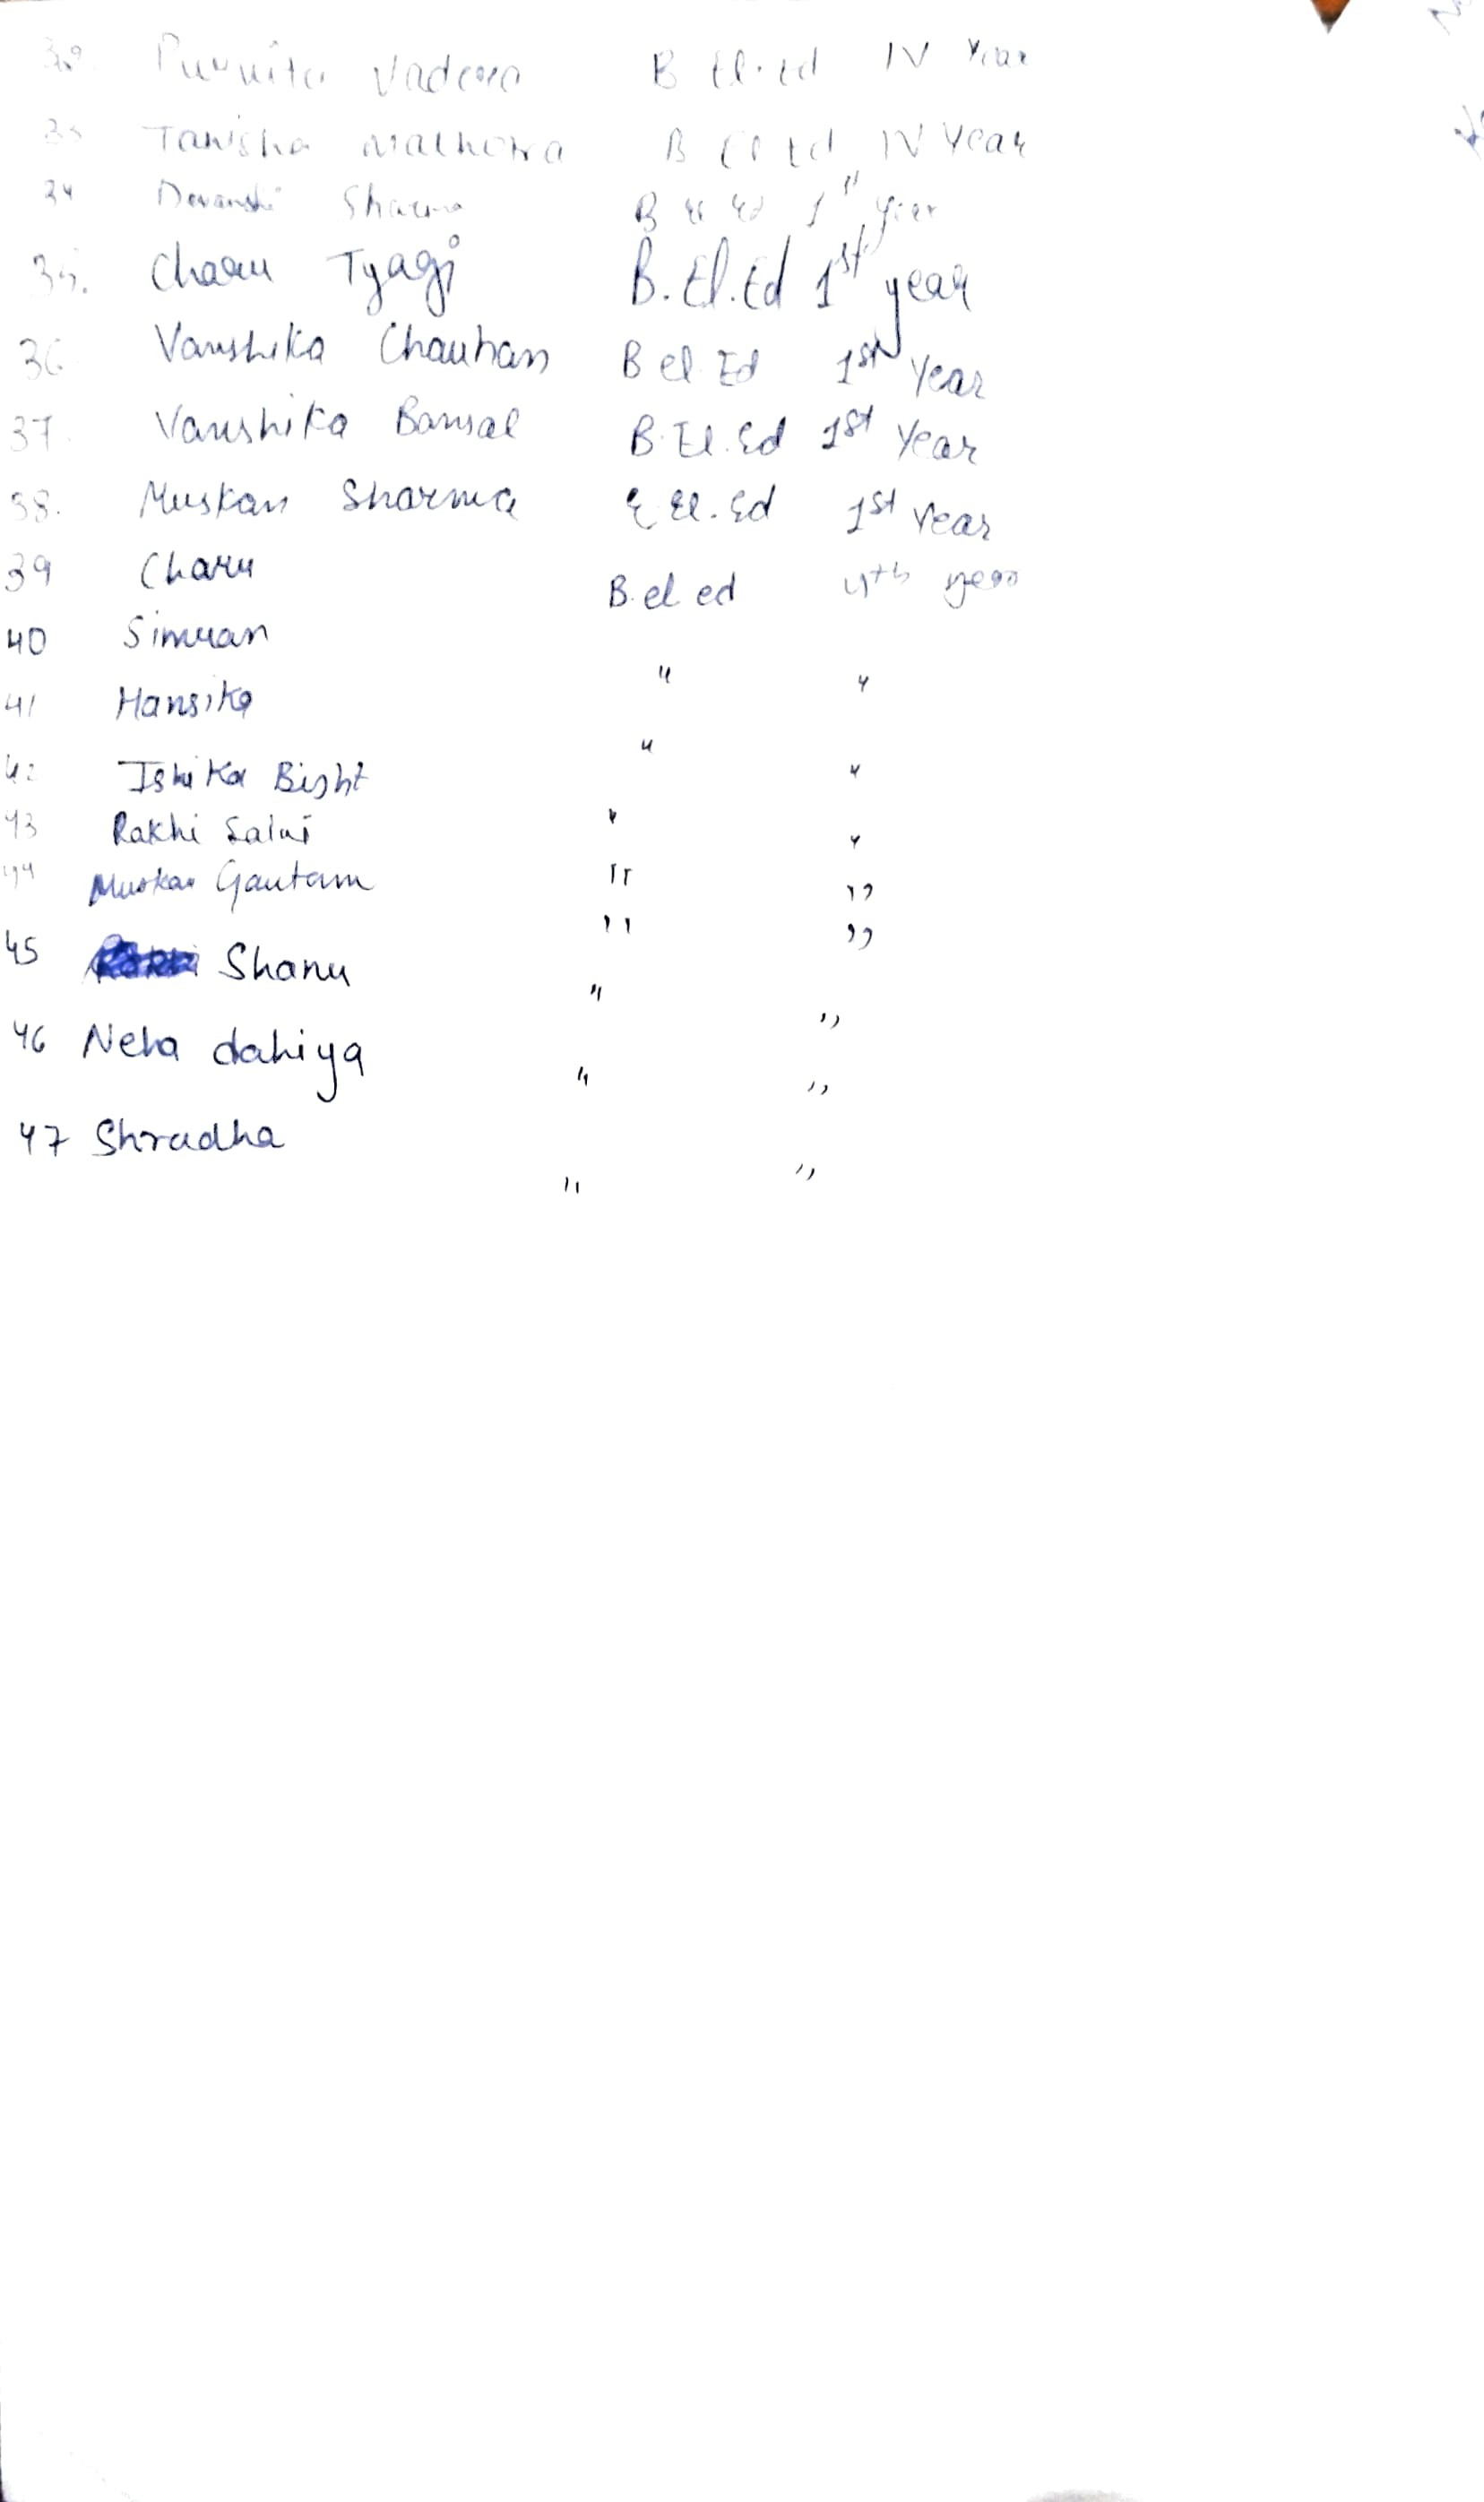 Tanisha Malhotra B El Ed IV Year
34 Devanshi Sharma B El Ed 1st year
35. Charu Tyagi B.El.Ed 1st year
36 Vanshika Chauhan B El Ed 1st Year
37. Vanshika Bansal B.El.Ed 1st Year
38. Muskan Sharma El.Ed 1st Year
39 Charu B.el ed 4th year
40 Simran " "
41 Hansika " "
42 Ishika Bisht " "
43 Rakhi Saini " "
44 Muskan Gautam " "
45 Shanu " "
46 Neha dahiya " "
47 Shradha " "